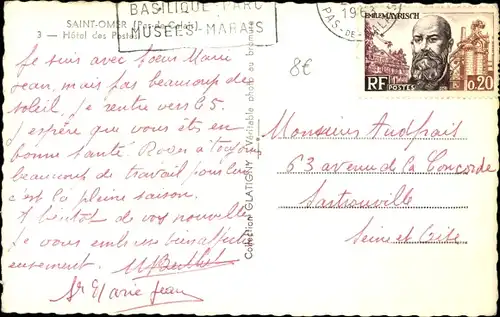 SAINT-OMER (Pas-de-Calais)
3 — Hôtel des Postes
BASILIQUE-PARC
MUSÉES-MARAIS
1963
PAS-DE-CALAIS
EMILE MAYRISCH
RF POSTES 0,20
8€
Je suis avec Soeur Marie
Jean, mais pas beaucoup de
soleil. Je rentre vers le 5.
J'espère que vous êtes en
bonne santé. Roger a toujours
beaucoup de travail pour lui
c'est la pleine saison.
A bientôt de vos nouvelles
Je vous embrasse bien affect
ueusement. M Berthet
Sr Marie Jean
Collection GLATIGNY - Véritable photo au bromure
Monsieur Audfrait
63 avenue de la Concorde
Sartrouville
Seine et Oise